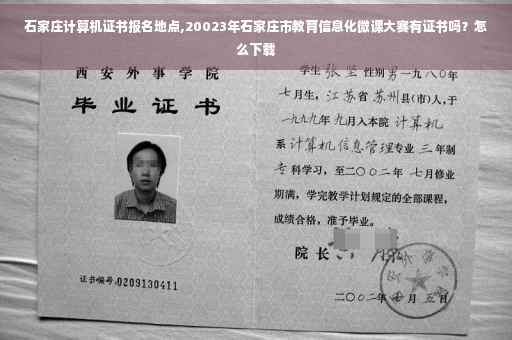 石家庄计算机证书报名地点,20023年石家庄市教育信息化微课大赛有证书吗？怎
么下载
西安外事学院
毕业证书
证书编号:0209130411
学生 张坚 性别 男 一九八〇年
七月生，江苏省 苏州县(市)人,于
一九九九年 九月入本院 计算机
系 计算机信息管理专业 三 年制
专 科学习，至二〇〇二年 七月修业
期满，学完教学计划规定的全部课程，
成绩合格，准予毕业。
院 长
二〇〇二年 七 月 五 日